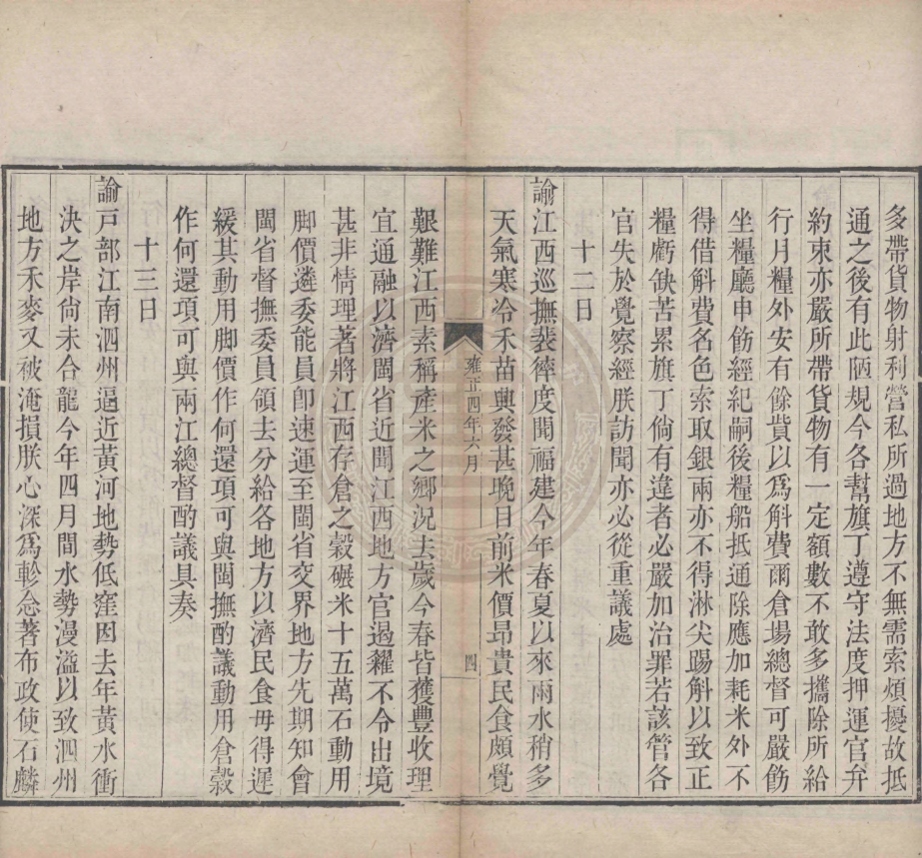 多帶貨物射利營私所過地方不無需索煩擾故抵
通之後有此陋規今各幫旗丁遵守法度押運官弁
約束亦嚴所帶貨物有一定額數不敢多攜除所給
行月糧外安有餘貲以爲斛費爾倉場總督可嚴飭
坐糧廳申飭經紀嗣後糧船抵通除應加耗米外不
得借斛費名色索取銀兩亦不得淋尖踢斛以致正
糧虧缺苦累旗丁倘有違者必嚴加治罪若該管各
官失於覺察經朕訪聞亦必從重議處
十二日
諭江西巡撫裴𢕑度聞福建今年春夏以來雨水稍多
天氣寒冷禾苗興發甚晚目前米價昂貴民食頗覺
雍正四年六月
四
艱難江西素稱產米之鄉況去歲今春皆獲豐收理
宜通融以濟閩省近聞江西地方官遏糴不令出境
甚非情理著將江西存倉之穀碾米十五萬石動用
脚價遴委能員卽速運至閩省交界地方先期知會
閩省督撫委員領去分給各地方以濟民食毋得遲
緩其動用脚價作何還項可與閩撫酌議動用倉穀
作何還項可與兩江總督酌議具奏
十三日
諭戸部江南泗州逼近黃河地勢低窪因去年黃水衝
決之岸尙未合龍今年四月間水勢漫溢以致泗州
地方禾麥又被淹損朕心深爲軫念著布政使石麟